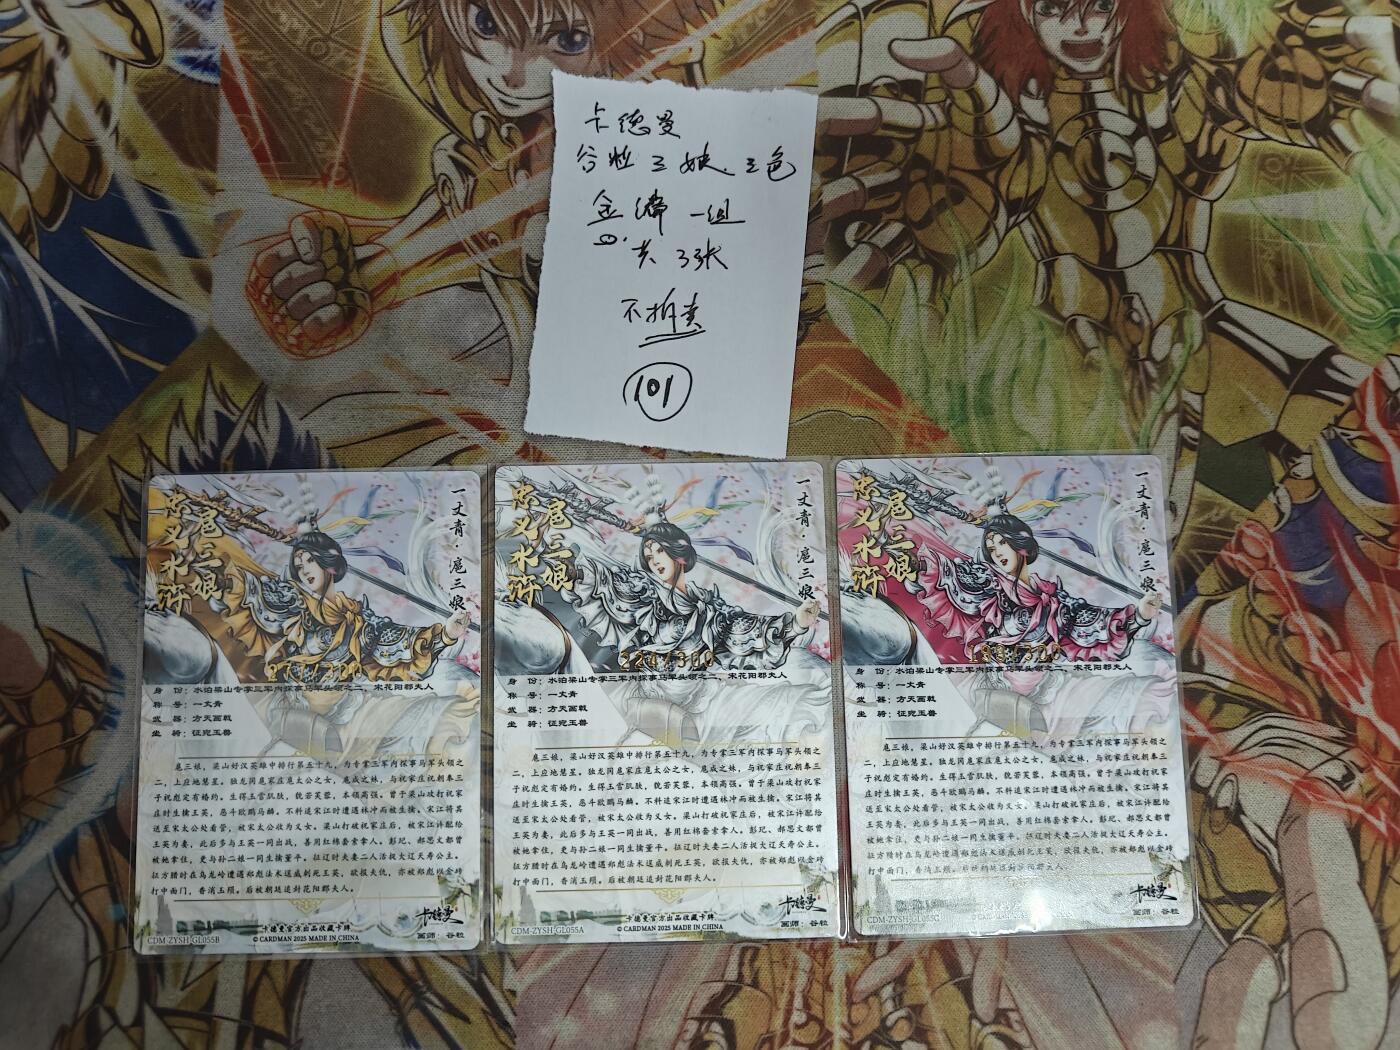 卡德曼
谷粒三娘.三色
金编一组
共3张
不拆卖
101
忠义水浒
扈三娘
一丈青·扈三娘
271/300
身 份：水泊梁山专掌三军内探事马军头领之二、宋花阳郡夫人
称 号：一丈青
武 器：方天画戟
坐 骑：征宛玉兽
扈三娘，梁山好汉英雄中排行第五十九，为专掌三军内探事马军头领之
二，上应地慧星。独龙冈扈家庄扈太公之女，扈成之妹，与祝家庄祝朝奉三
子祝彪定有婚约。生得玉雪肌肤，貌若芙蓉，本领高强。曾于梁山攻打祝家
庄时生擒王英，恶斗欧鹏马麟。不料追宋江时遭遇林冲而被生擒。宋江将其
送至宋太公处看管，被宋太公收为义女。梁山打破祝家庄后，被宋江许配给
王英为妻，此后多与王英一同出战，善用红棉套索拿人。彭玘、郝思文都曾
被她拿住，更与孙二娘一同生擒董平。征辽时夫妻二人活捉大辽天寿公主。
征方腊时在乌龙岭遭遇郑彪法术送戚刺死王英，欲报夫仇，亦被郑彪以金砖
打中面门，香消玉殒。后被朝廷追封花阳郡夫人。
卡德曼
画师：谷粒
CDM-ZYSH-GL055B
卡德曼官方出品收藏卡牌
© CARDMAN 2025 MADE IN CHINA
忠义水浒
扈三娘
一丈青·扈三娘
224/300
身 份：水泊梁山专掌三军内探事马军头领之二、宋花阳郡夫人
称 号：一丈青
武 器：方天画戟
坐 骑：征宛玉兽
扈三娘，梁山好汉英雄中排行第五十九，为专掌三军内探事马军头领之
二，上应地慧星。独龙冈扈家庄扈太公之女，扈成之妹，与祝家庄祝朝奉三
子祝彪定有婚约。生得玉雪肌肤，貌若芙蓉，本领高强。曾于梁山攻打祝家
庄时生擒王英，恶斗欧鹏马麟。不料追宋江时遭遇林冲而被生擒。宋江将其
送至宋太公处看管，被宋太公收为义女。梁山打破祝家庄后，被宋江许配给
王英为妻，此后多与王英一同出战，善用红棉套索拿人。彭玘、郝思文都曾
被她拿住，更与孙二娘一同生擒董平。征辽时夫妻二人活捉大辽天寿公主。
征方腊时在乌龙岭遭遇郑彪法术送戚刺死王英，欲报夫仇，亦被郑彪以金砖
打中面门，香消玉殒。后被朝廷追封花阳郡夫人。
卡德曼
画师：谷粒
CDM-ZYSH-GL055A
卡德曼官方出品收藏卡牌
© CARDMAN 2025 MADE IN CHINA
忠义水浒
扈三娘
一丈青·扈三娘
身 份：水泊梁山专掌三军内探事马军头领之二、宋花阳郡夫人
称 号：一丈青
武 器：方天画戟
坐 骑：征宛玉兽
扈三娘，梁山好汉英雄中排行第五十九，为专掌三军内探事马军头领之
二，上应地慧星。独龙冈扈家庄扈太公之女，扈成之妹，与祝家庄祝朝奉三
子祝彪定有婚约。生得玉雪肌肤，貌若芙蓉，本领高强。曾于梁山攻打祝家
庄时生擒王英，恶斗欧鹏马麟。不料追宋江时遭遇林冲而被生擒。宋江将其
送至宋太公处看管，被宋太公收为义女。梁山打破祝家庄后，被宋江许配给
王英为妻，此后多与王英一同出战，善用红棉套索拿人。彭玘、郝思文都曾
卡德曼
画师：谷粒
CDM-ZYSH-GL055C